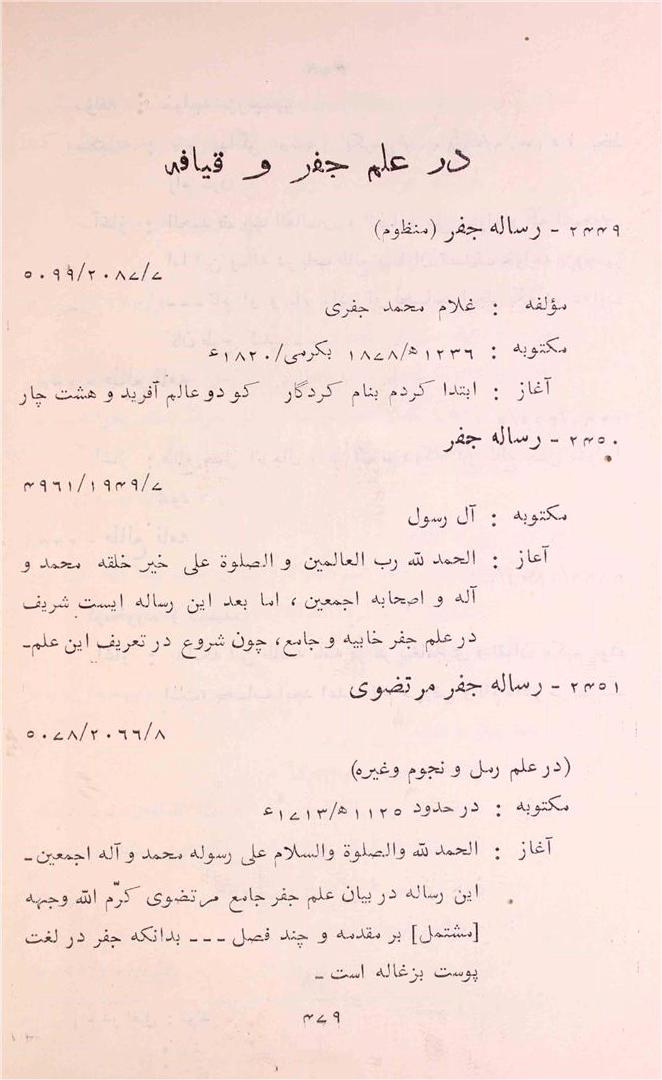 در علم جفر و قیافه
۲۴۴۹ - رساله جفر (منظوم)
۵۰۹۹/۲۰۸۷/۷
مؤلفه : غلام محمد جفری
مکتوبه : ۱۲۳۶ھ/۱۸۷۸ بکرمی/۱۸۲۰ء
آغاز : ابتدا کردم بنام کردگار کو دو عالم آفرید و هشت چار
۲۴۵۰ - رساله جفر
۴۹۶۱/۱۹۴۹/۷
مکتوبه : آل رسول
آغاز : الحمد لله رب العالمین و الصلوة علی خیر خلقه محمد و
آله و اصحابه اجمعین، اما بعد این رساله ایست شریف
در علم جفر خابیه و جامع، چون شروع در تعریف این علم۔
۲۴۵۱ - رساله جفر مرتضوی
۵۰۷۸/۲۰۶۶/۸
(در علم رمل و نجوم وغیره)
مکتوبه : در حدود ۱۱۲۵ھ/۱۷۱۳ء
آغاز : الحمد لله والصلوة والسلام علی رسوله محمد و آله اجمعین۔
این رساله در بیان علم جفر جامع مرتضوی کرّم الله وجهه
[مشتمل] بر مقدمه و چند فصل ۔۔۔ بدانکه جفر در لغت
پوست بزغاله است ۔
۴۷۹